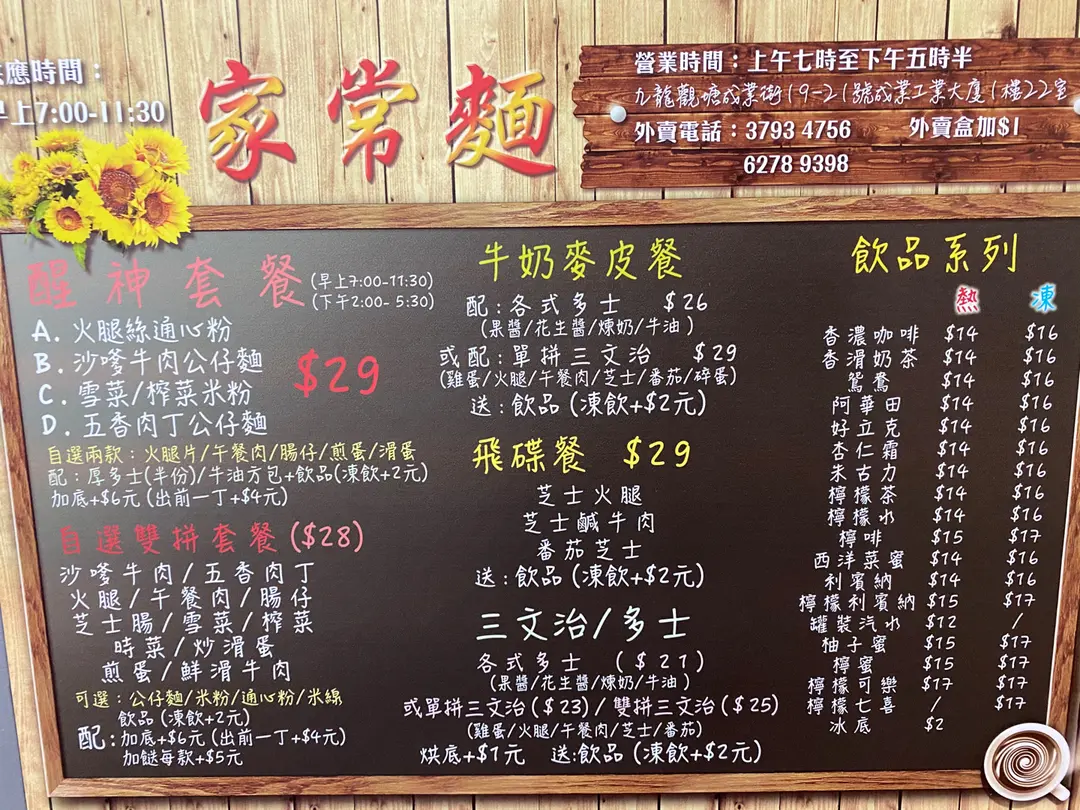 應時間：
早上7:00-11:30
家常麵
營業時間：上午七時至下午五時半
九龍觀塘成業街19-21號成業工業大廈1樓22室
外賣電話：3793 4756 外賣盒加$1
6278 9398
醒神套餐 (早上7:00-11:30)
(下午2:00-5:30)
A. 火腿絲通心粉
B. 沙嗲牛肉公仔麵
C. 雪菜/榨菜米粉
D. 五香肉丁公仔麵
$29
自選兩款：火腿片/午餐肉/腸仔/煎蛋/滑蛋
配：厚多士(半份)/牛油方包+飲品(凍飲+2元)
加底+$6元 (出前一丁+$4元)
自選雙拼套餐 ($28)
沙嗲牛肉/五香肉丁
火腿/午餐肉/腸仔
芝士腸/雪菜/榨菜
時菜/炒滑蛋
煎蛋/鮮滑牛肉
可選：公仔麵/米粉/通心粉/米線
飲品 (凍飲+2元)
配：加底+$6元 (出前一丁+$4元)
加餸每款+$5元
牛奶麥皮餐
配：各式多士 $26
(果醬/花生醬/煉奶/牛油)
或配：單拼三文治 $29
(雞蛋/火腿/午餐肉/芝士/番茄/碎蛋)
送：飲品 (凍飲+$2元)
飛碟餐 $29
芝士火腿
芝士鹹牛肉
番茄芝士
送：飲品 (凍飲+$2元)
三文治/多士
各式多士 ($21)
(果醬/花生醬/煉奶/牛油)
或單拼三文治($23)/雙拼三文治($25)
(雞蛋/火腿/午餐肉/芝士/番茄)
烘底+$1元 送:飲品 (凍飲+$2元)
飲品系列
熱 凍
香濃咖啡 $14 $16
香滑奶茶 $14 $16
鴛鴦 $14 $16
阿華田 $14 $16
好立克 $14 $16
杏仁霜 $14 $16
朱古力 $14 $16
檸檬茶 $14 $16
檸檬水 $14 $16
檸啡 $15 $17
西洋菜蜜 $14 $16
利賓納 $14 $16
檸檬利賓納 $15 $17
罐裝汽水 $12 /
柚子蜜 $15 $17
檸蜜 $15 $17
檸檬可樂 $17 $17
檸檬七喜 / $17
冰底 $2